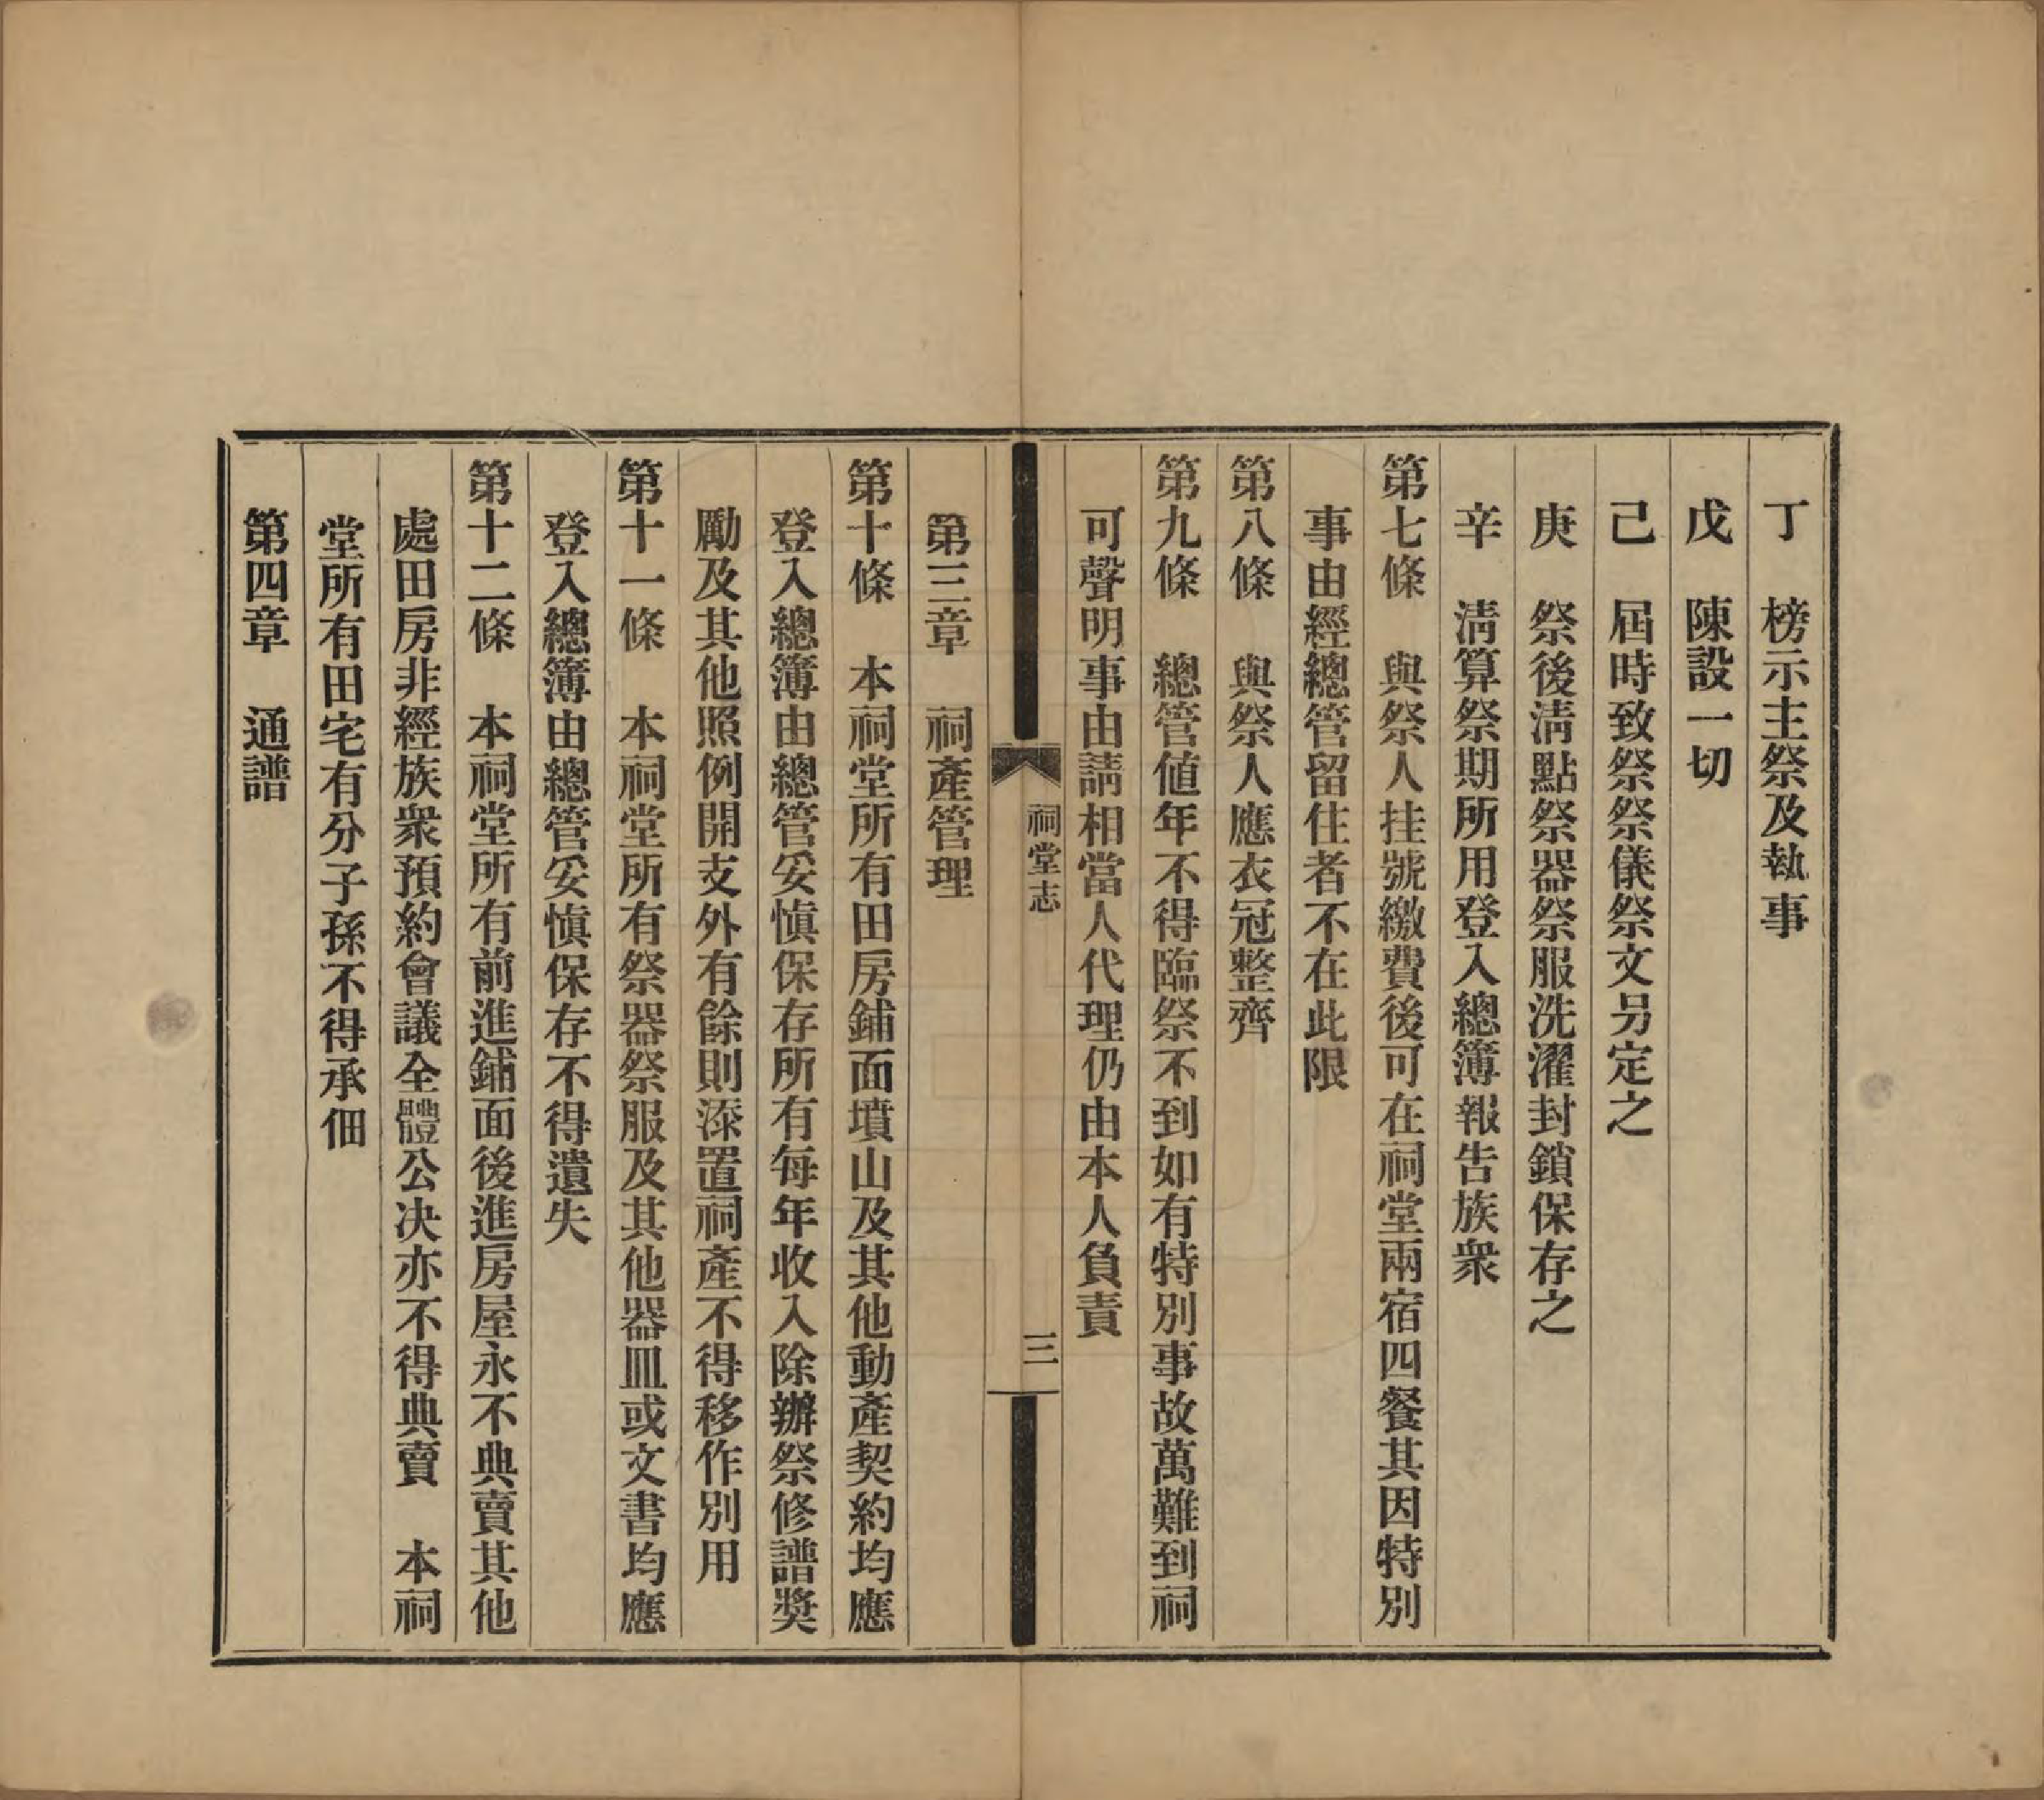 丁　榜示主祭及執事
戊　陳設一切
己　屆時致祭祭儀祭文另定之
庚　祭後淸點祭器祭服洗濯封鎖保存之
辛　淸算祭期所用登入總簿報告族衆
第七條　與祭人挂號繳費後可在祠堂兩宿四餐其因特別
事由經總管留住者不在此限
第八條　與祭人應衣冠整齊
第九條　總管値年不得臨祭不到如有特別事故萬難到祠
可聲明事由請相當人代理仍由本人負責
祠堂志
三
第三章　祠產管理
第十條　本祠堂所有田房鋪面墳山及其他動產契約均應
登入總簿由總管妥愼保存所有每年收入除辦祭修譜奬
勵及其他照例開支外有餘則添置祠產不得移作別用
第十一條　本祠堂所有祭器祭服及其他器皿或文書均應
登入總簿由總管妥愼保存不得遺失
第十二條　本祠堂所有前進鋪面後進房屋永不典賣其他
處田房非經族衆預約會議全體公决亦不得典賣　本祠
堂所有田宅有分子孫不得承佃
第四章　通譜